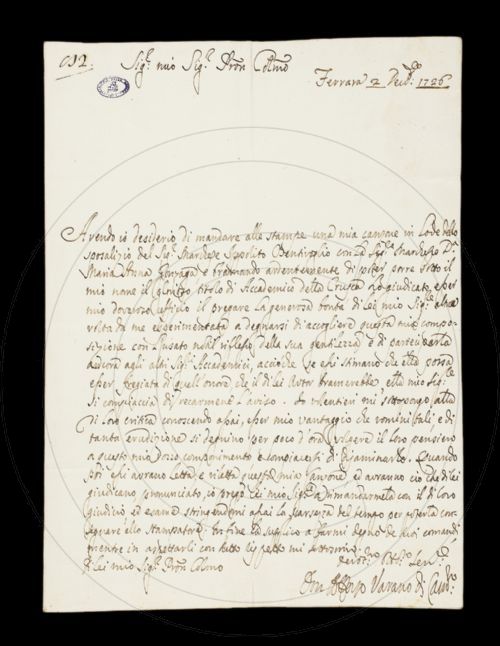 Sig.r mio Sig.r Pron Colmo
Ferrara 2 Decb.e 1726
Avendo io desiderio di mandare alle stampe una mia canzone in Lode dello
sposalizio del Sig.r Marchese Ippolito Bentivoglio con la Sig.ra Marchesa D.a
Maria Anna Gonzaga e bramando ardentemente di poter porre sotto il
mio nome il glorioso titolo di Accademico della Crusca ho giudicato esser
mio doveroso ufficio il pregare la generosa bontà di lei mio Sig.re altra
volta da me esperimentata a degnarsi di accogliere questa mia compo-
sizione con l'usato nobil della sua gentilezza e di parteciparla
ancora agli altri Sig.ri Accademici, acciocchè se essi stimano che ella possa
esser fregiata di quell'onore che il di lei Autor bramerebbe ella mio Sig.re
si compiaccia di recarmene l'aviso. Io volentieri mi sottopongo alla
di loro critica conoscendo assai esser mio vantaggio che uomini tali e di
tanta erudizione si degnino per poco d'ora volgere il loro pensiero
a questo mio rozo componimento e compiacersi di esaminarlo. Quando
poi essi avranno letta e riletta questa mia Canzone ed avranno ciò che di lei
giudicano pronunciato, io prego lei mio Sig.re a rimandarmela con il di loro
giudicio ed esame stringendomi assai la scarsezza del tempo per poterla con-
segnare allo Stampatore. In fine la supplico a farmi degno de suoi comandi
mentre in aspettarli con tutto rispetto mi sottoscrivo
di lei mio Sig.r Pron Colmo
Don Alfonso Varano di Cam.no